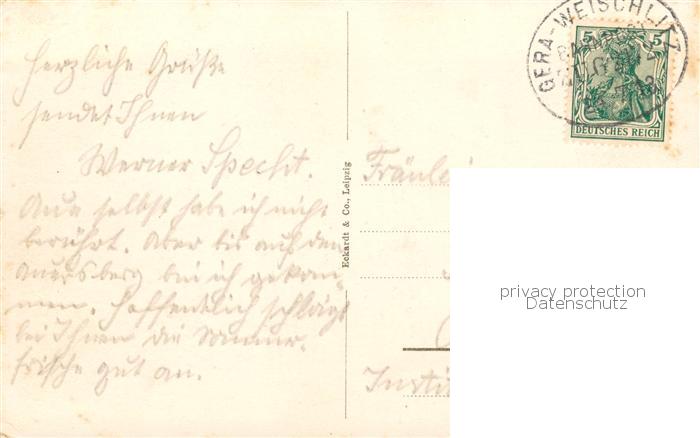 Herzliche Grüße
sendet Ihnen
Werner Specht.
Aue selbst habe ich nicht
berührt. Aber bis auf den
Auersberg bin ich gekom-
men. Hoffentlich schlägt
bei Ihnen die Sommer-
frische gut an.
Eckardt & Co., Leipzig
GERA-WEISCHLITZ
5 5
DEUTSCHES REICH
Fräulei
Instit
privacy protection
Datenschutz